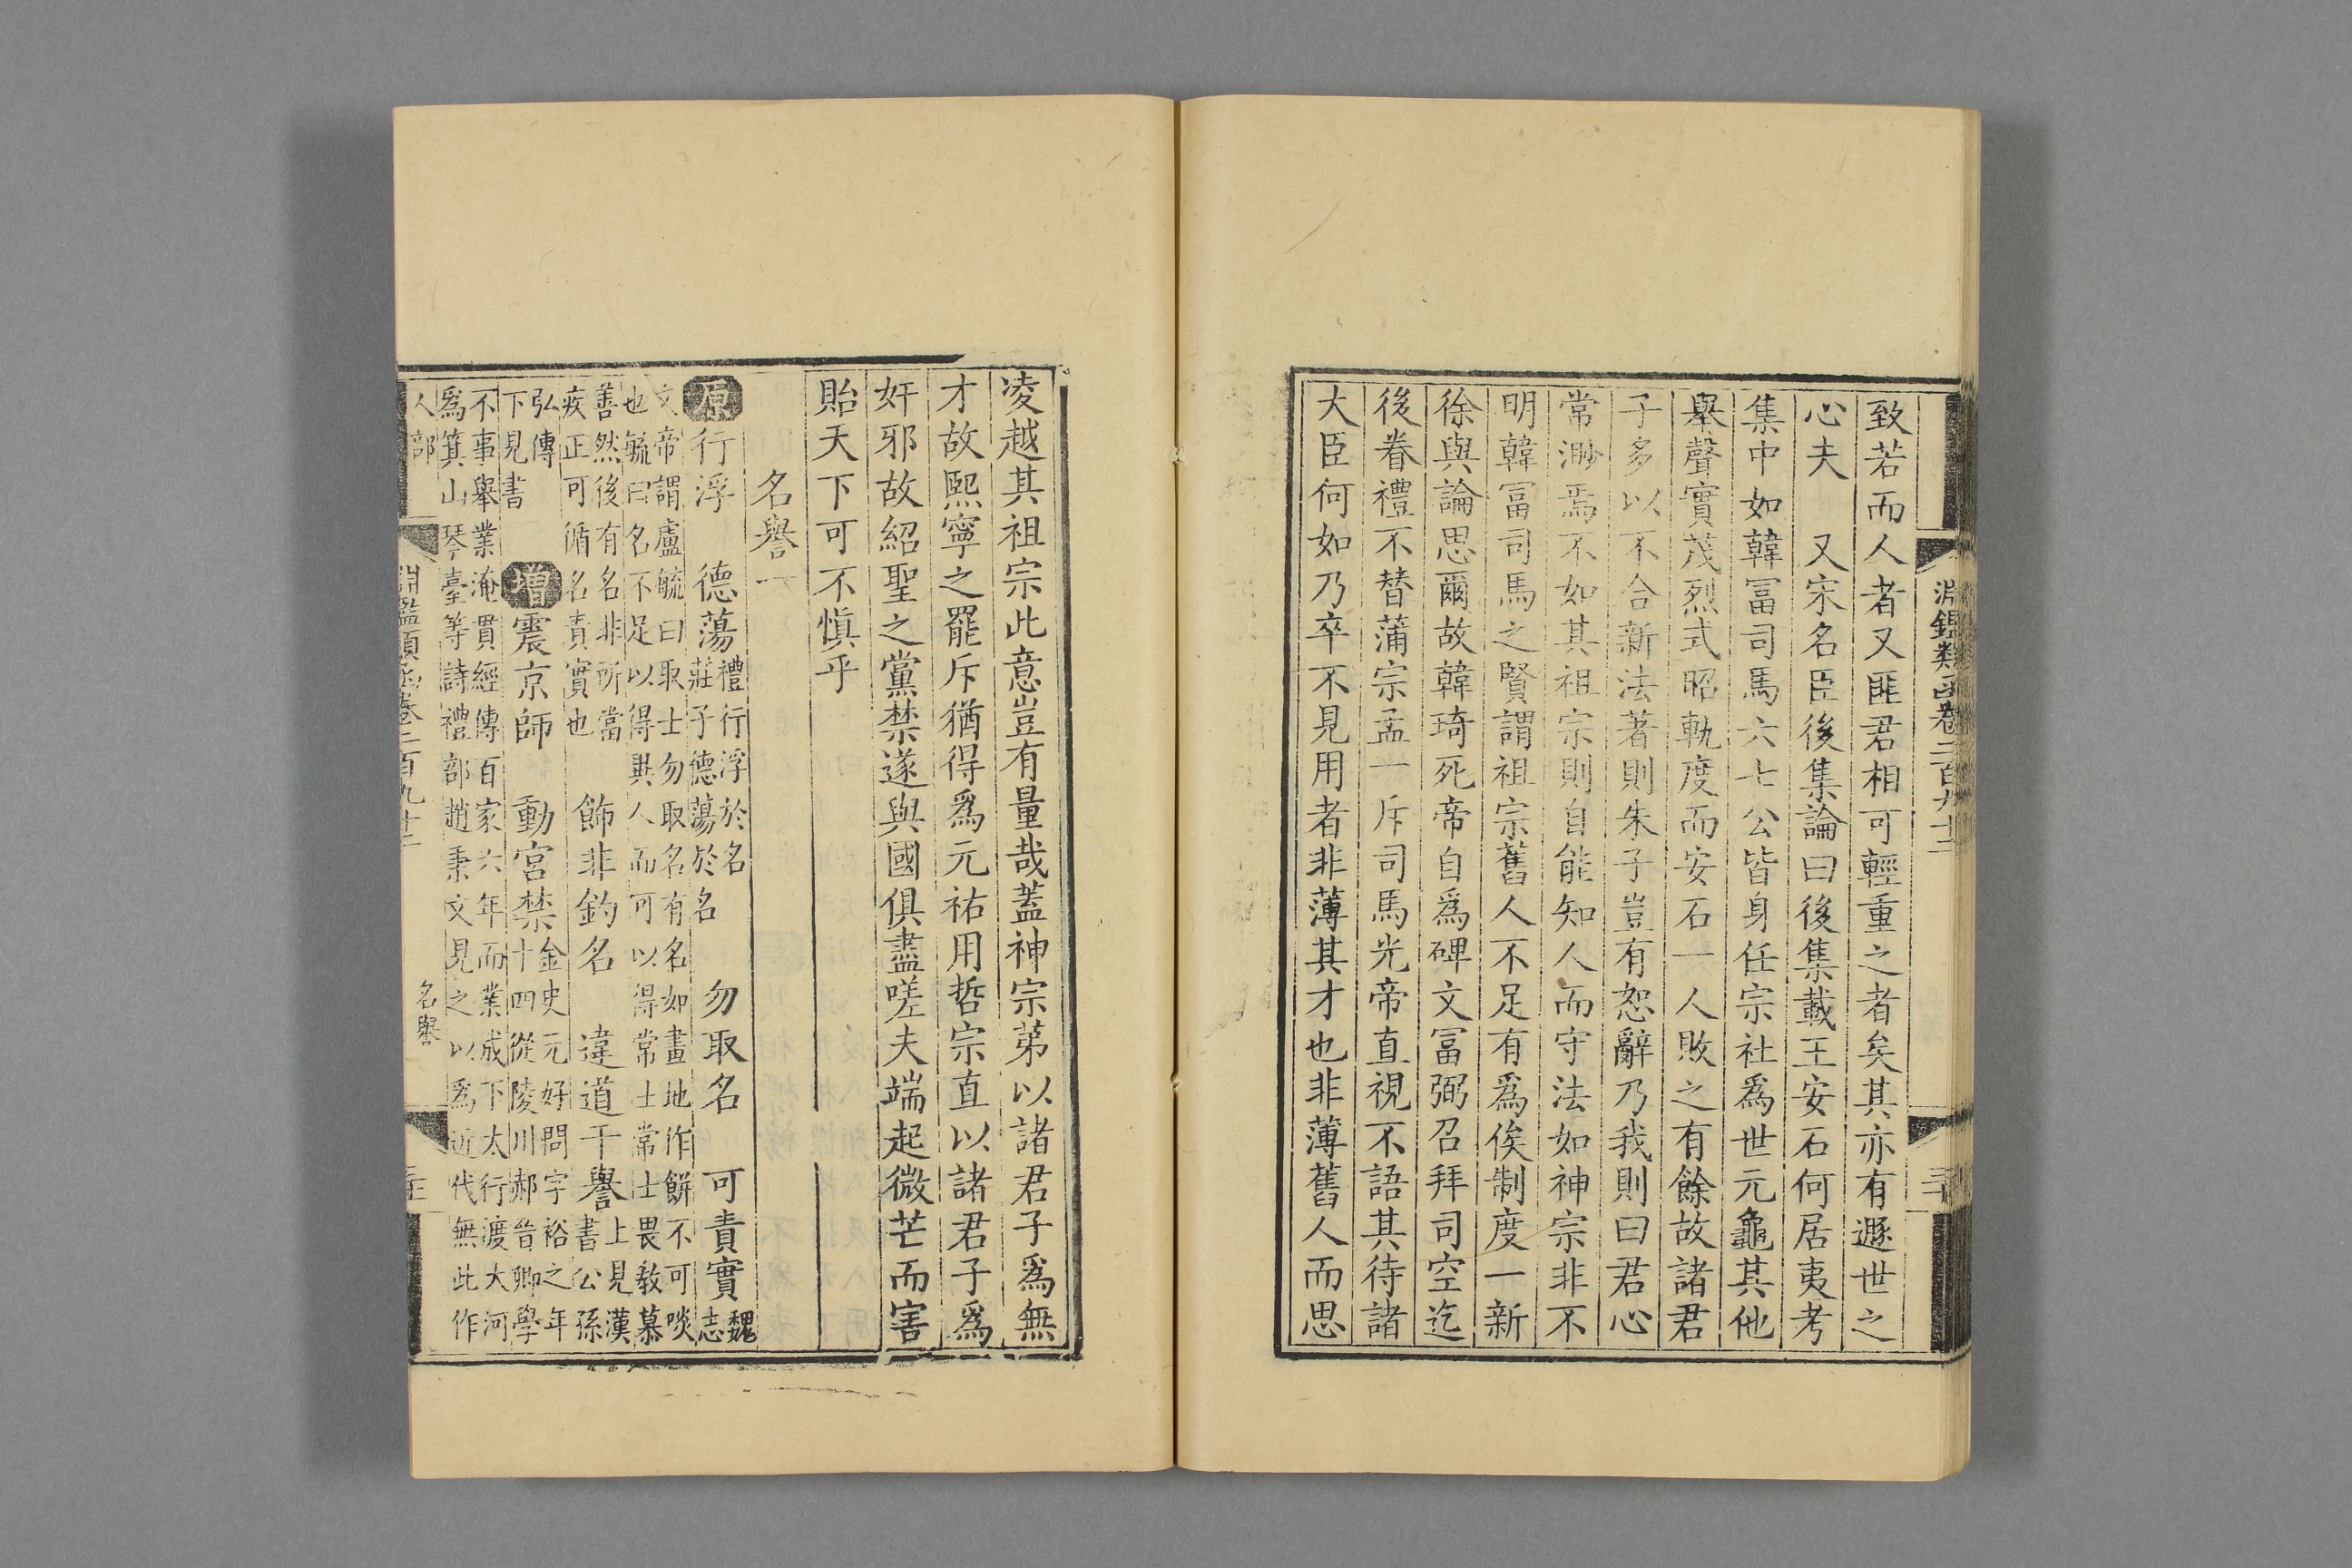 淵鑑類函卷二百九十二
三十
致若而人者又匪君相可輕重之者矣其亦有遯世之
心夫　又宋名臣後集論曰後集載王安石何居夷考
集中如韓冨司馬六七公皆身任宗社爲世元龜其他
舉聲實茂烈式昭軌度而安石一人敗之有餘故諸君
子多以不合新法著則朱子豈有恕辭乃我則曰君心
常渺焉不如其祖宗則自能知人而守法如神宗非不
明韓冨司馬之賢謂祖宗舊人不足有爲俟制度一新
徐與論思爾故韓琦死帝自爲碑文冨弼召拜司空迄
後眷禮不替蒲宗孟一斥司馬光帝直視不語其待諸
大臣何如乃卒不見用者非薄其才也非薄舊人而思
凌越其祖宗此意豈有量哉蓋神宗苐以諸君子爲無
才故熙寧之罷斥猶得爲元祐用哲宗直以諸君子爲
奸邪故紹聖之黨禁遂與國俱盡嗟夫端起微芒而害
貽天下可不愼乎
名譽一
原行浮　德蕩禮行浮於名莊子德蕩於名　勿取名　可責實魏志
文帝謂盧毓曰取士勿取名有名如畫地作餅不可啖
也毓曰名不足以得異人而可以得常士常士畏敎慕
善然後有名非所當疾正可循名責實也　飾非釣名　違道干譽上見漢書公孫
弘傳下見書　增震京師　動宮禁金史元好問字裕之年十四從陵川郝晉卿學
不事舉業淹貫經傳百家六年而業成下太行渡大河
爲箕山琴臺等詩禮部趙秉文見之以爲近代無此作
人部
淵鑑類函卷二百九十二
名譽
三十一